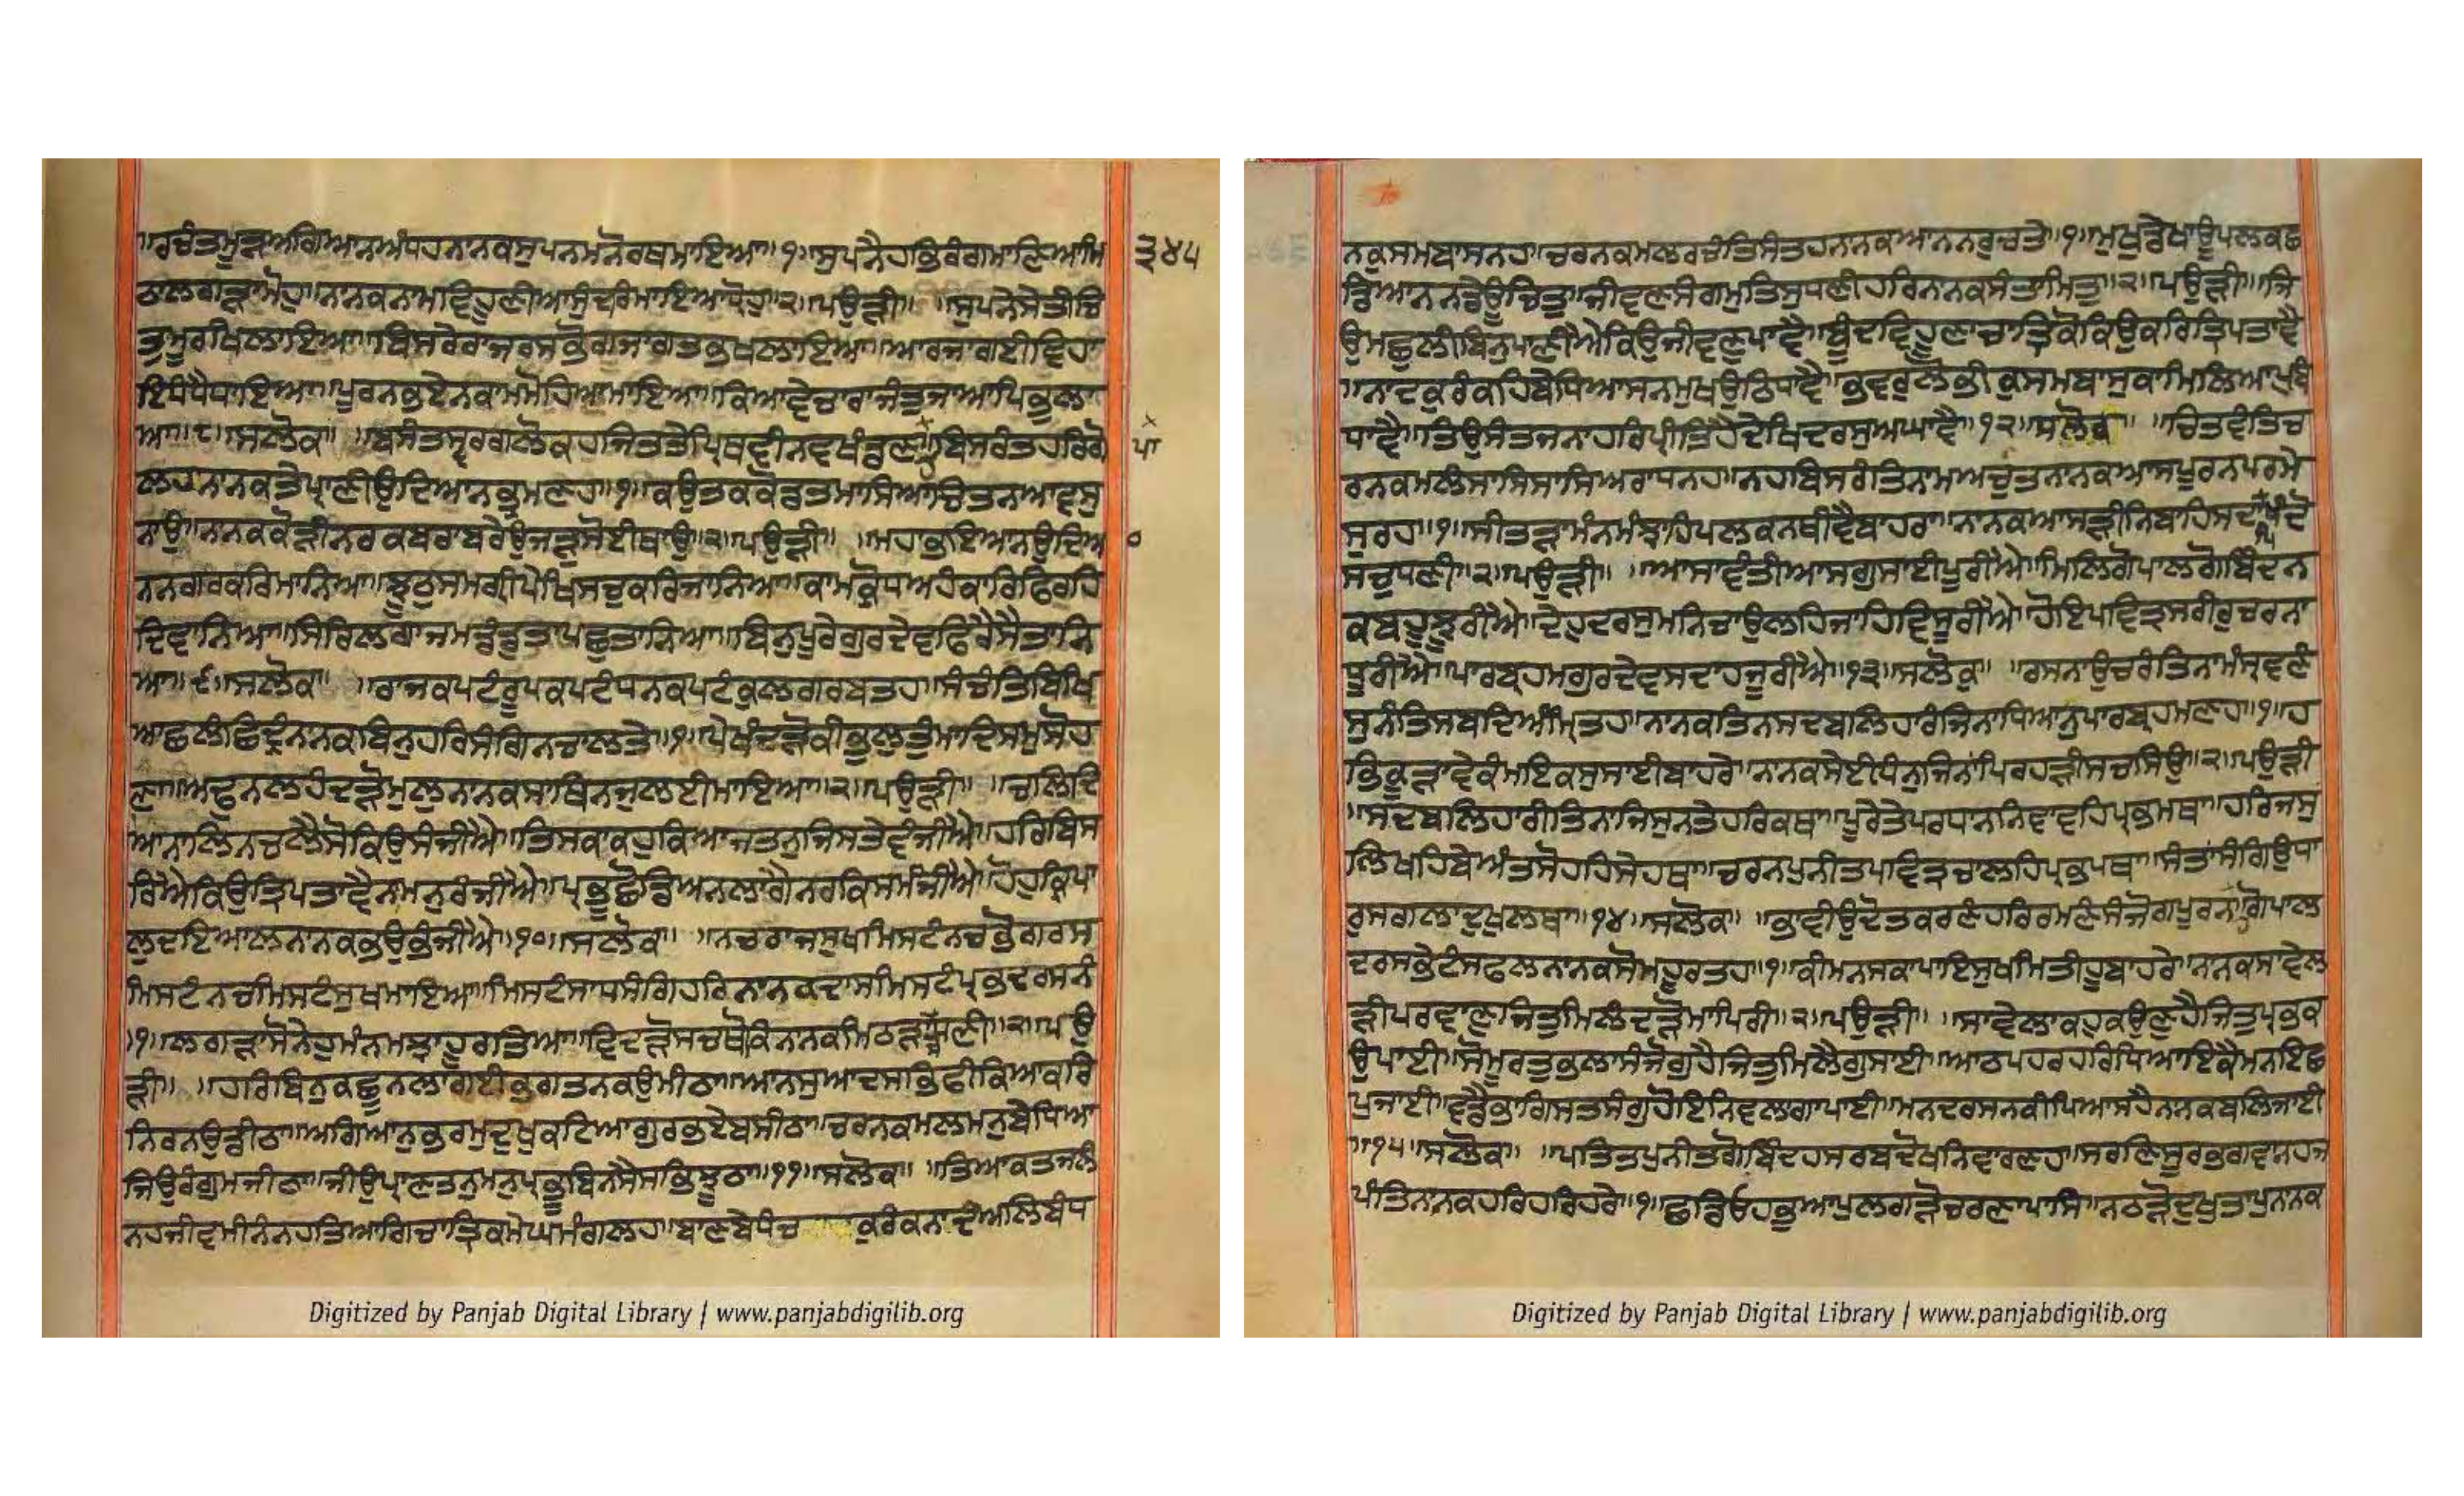 ॥ਰਚੰਤਮੂੜਅਗਿਆਨਅੰਧਹਨਾਨਕਸੁਪਨਮਨੋਰਥਮਾਇਆ॥੧॥ਸੁਪਨੈਹਭਿਰੰਗਮਾਣਿਆਮਿ
ਠਾਲਗੜਾਮੋਹੁ॥ਨਾਨਕਨਾਮਵਿਹੂਣੀਆਸੁੰਦਰਿਮਾਇਆਧ੍ਰੋਹੁ॥੨॥ਪਉੜੀ॥ ॥ਸੁਪਨੇਸੇਤੀਚਿ
ਤੁਮੂਰਖਿਲਾਇਆ॥ਬਿਸਰੇਰਾਜਰਸਭੋਗਜਾਗਤਭਖਲਾਇਆ॥ਆਰਜਾਗਈਵਿਹਾ
ਇਧੰਧੈਧਾਇਆ॥ਪੂਰਨਭਏਨਕਾਮਮੋਹਿਆਮਾਇਆ॥ਕਿਆਵੇਚਾਰਾਜੰਤੁਜਾਆਪਿਭੁਲਾ
ਆ॥੮॥ਸਲੋਕ॥ ॥ਬਸੰਤਸ੍ਵਰਗਲੋਕਹਜਿਤਤੇਪ੍ਰਿਥਵੀਨਵਖੰਡਣ॥ਬਿਸਰੰਤਹਰਿਗੋ
ਲਹਨਾਨਕਤੇਪ੍ਰਾਣੀਉਦਿਆਨਭ੍ਰਮਣਹ॥੧॥ਕਉਤਕਕੋਡਤਮਾਸਿਆਚਿਤਨਆਵਸੁ
ਨਾਉ॥ਨਾਨਕਕੋੜੀਨਰਕਬਰਾਬਰੇਉਜੜੁਸੋਈਥਾਉ॥੨॥ਪਉੜੀ॥ ॥ਮਹਾਭਇਆਨਉਦਿਆ
ਨਨਗਰਕਰਿਮਾਨਿਆ॥ਝੂਠਸਮਗ੍ਰੀਪੇਖਿਸਚੁਕਰਿਜਾਨਿਆ॥ਕਾਮਕ੍ਰੋਧਅਹੰਕਾਰਿਫਿਰਹਿ
ਦਿਵਾਨਿਆ॥ਸਿਰਿਲਗਾਜਮਡੰਡੁਤਾਪਛੁਤਾਨਿਆ॥ਬਿਨੁਪੂਰੇਗੁਰਦੇਵਫਿਰੈਸੈਤਾਨਿ
ਆ॥੯॥ਸਲੋਕ॥ ॥ਰਾਜਕਪਟੰਰੂਪਕਪਟੰਧਨਕਪਟੰਕੁਲਗਰਬਤਹ॥ਸੰਚੰਤਿਬਿਖਿ
ਆਛਲੰਛਿਦ੍ਰੰਨਾਨਕਬਿਨੁਹਰਿਸੰਗਿਨਚਾਲਤੇ॥੧॥ਪੇਖੰਦੜੋਕੀਭੁਲੁਤੁੰਮਾਦਿਸਮੁਸੋਹ
ਣਾ॥ਅਢੁਨਲਹੰਦੜੋਮੁਲੁਨਾਨਕਸਾਥਿਨਜੁਲਈਮਾਇਆ॥੨॥ਪਉੜੀ॥ ॥ਚਲਿਦਿ
ਆਨਾਲਿਨਚਲੈਸੋਕਿਉਸੰਜੀਐ॥ਤਿਸਕਾਕਹੁਕਿਆਜਤਨੁਜਿਸਤੇਵੰਜੀਐ॥ਹਰਿਬਿਸ
ਰਿਐਕਿਉਤ੍ਰਿਪਤਾਵੈਨਾਮਨੁਰੰਜੀਐ॥ਪ੍ਰਭੂਛੋਡਿਅਨਲਾਗੈਨਰਕਿਸਮੰਜੀਐ॥ਹੋਹੁਕ੍ਰਿਪਾ
ਲੁਦਇਆਲਨਾਨਕਭਉਭੰਜੀਐ॥੧੦॥ਸਲੋਕ॥ ॥ਨਚਰਾਜਸੁਖਮਿਸਟੰਨਚਭੋਗਰਸ
ਮਿਸਟੰਨਚਮਿਸਟੰਸੁਖਮਾਇਆ॥ਮਿਸਟੰਸਾਧਸੰਗਿਹਰਿਨਾਨਕਦਾਸਮਿਸਟੰਪ੍ਰਭਦਰਸਨੰ
॥੧॥ਲਗੜਾਸੋਨੇਹੁਮੰਨਮਝਾਹੂਰਤਿਆ॥ਵਿਧੜੋਸਚਥੋਕਿਨਾਨਕਮਿਠੜਾਧਣੀ॥੨॥ਪਉ
ੜੀ॥ ॥ਹਰਿਬਿਨੁਕਛੂਨਲਾਗਈਭਗਤਨਕਉਮੀਠਾ॥ਆਨਸੁਆਦਸਭਿਫੀਕਿਆਕਰਿ
ਨਿਰਨਉਡੀਠਾ॥ਅਗਿਆਨੁਭਰਮੁਦੁਖੁਕਟਿਆਗੁਰਭਏਬਸੀਠਾ॥ਚਰਨਕਮਲਮਨੁਬੇਧਿਆ
ਜਿਉਰੰਗੁਮਜੀਠਾ॥ਜੀਉਪ੍ਰਾਣਤਨੁਮਨੁਪ੍ਰਭੂਬਿਨਸੈਸਭਿਝੂਠਾ॥੧੧॥ਸਲੋਕ॥ ॥ਤਿਆਕਤਜਲੰ
ਨਹਜੀਵਮੀਨੰਨਹਤਿਆਗਿਚਾਤ੍ਰਿਕਮੇਘਮੰਗਲਹ॥ਬਾਣਬੇਧੰਚ ਕੁਰੰਕਨਾਦੰਅਲਿਬੰਧ
੩੪੫
ਪਾ
ਨਕੁਸਮਬਾਸਨਹ॥ਚਰਨਕਮਲਰਚੰਤਿਸੰਤਹਨਾਨਕਆਨਨਰੁਚਤੇ॥੧॥ਮੁਖੁਡੇਖਾਊਪਲਕਛ
ਡਿਆਨਨਡੇਊਚਿਤੁ॥ਜੀਵਣਸੰਗਮੁਤਿਸੁਧਣੀਹਰਿਨਾਨਕਸੰਤਾਮਿਤੁ॥੨॥ਪਉੜੀ॥ਜਿ
ਉਮਛੁਲੀਬਿਨੁਪਾਣੀਐਕਿਉਜੀਵਣੁਪਾਵੈ॥ਬੂੰਦਵਿਹੂਣਾਚਾਤ੍ਰਿਕੋਕਿਉਕਰਿਤ੍ਰਿਪਤਾਵੈ
॥ਨਾਦਕੁਰੰਕਹਿਬੇਧਿਆਸਨਮੁਖਉਠਿਧਾਵੈ॥ਭਵਰੁਲੋਭੀਕੁਸਮਬਾਸੁਕਾਮਿਲਿਆਪੁਬੰ
ਧਾਵੈ॥ਤਿਉਸੰਤਜਨਾਹਰਿਪ੍ਰੀਤਿਹੈਦੇਖਿਦਰਸੁਅਘਾਵੈ॥੧੨॥ਸਲੋਕ॥ ॥ਚਿਤਵੰਤਿਚ
ਰਨਕਮਲੰਸਾਸਿਸਾਸਿਅਰਾਧਨਹ॥ਨਹਬਿਸਰੰਤਿਨਾਮਅਚੁਤਨਾਨਕਆਸਪੂਰਨਪਰਮੇ
ਸੁਰਹ॥੧॥ਸੀਤੜਾਮੰਨਮੰਝਾਹਿਪਲਕਨਥੀਵੈਬਾਹਰਾ॥ਨਾਨਕਆਸੜੀਨਿਬਾਹਿਸਦਾਪੇਖੰਦੋ
ਸਚੁਧਣੀ॥੨॥ਪਉੜੀ॥ ॥ਆਸਾਵੰਤੀਆਸਗੁਸਾਈਪੂਰੀਐ॥ਮਿਲਿਗੋਪਾਲਗੋਬਿੰਦਨ
ਕਬਹੂਝੂਰੀਐ॥ਦੇਹੁਦਰਸੁਮਨਿਚਾਉਲਹਿਜਾਹਿਵਿਸੂਰੀਐ॥ਹੋਇਪਵਿਤ੍ਰਸਰੀਰੁਚਰਨਾ
ਧੂਰੀਐ॥ਪਾਰਬ੍ਰਹਮਗੁਰਦੇਵਸਦਾਹਜੂਰੀਐ॥੧੩॥ਸਲੋਕ॥ ॥ਰਸਨਾਉਚਰੰਤਿਨਾਮੰਸ੍ਰਵਣੰ
ਸੁਨੰਤਿਸਬਦਿਅੰਮ੍ਰਿਤਹ॥ਨਾਨਕਤਿਨਸਦਬਲਿਹਾਰੰਜਿਨਾਧਿਆਨੁਪਾਰਬ੍ਰਹਮਣਹ॥੧॥ਹ
ਭਿਕੂੜਾਵੇਕੰਮਇਕਸੁਸਾਈਬਾਹਰੇ॥ਨਾਨਕਸੇਈਧੰਨੁਜਿਨਾਪਿਰਹੜੀਸਚਸਿਉ॥੨॥ਪਉੜੀ
॥ਸਦਬਲਿਹਾਰੀਤਿਨਾਜਿਸੁਨਤੇਹਰਿਕਥਾ॥ਪੂਰੇਤੇਪਰਧਾਨਨਿਵਾਵਹਿਪ੍ਰਭਮਥਾ॥ਹਰਿਜਸੁ
ਲਿਖਹਿਬੇਅੰਤਸੋਹਹਿਸੇਹਥਾ॥ਚਰਨਪੁਨੀਤਪਵਿਤ੍ਰਚਾਲਹਿਪ੍ਰਭਪਥਾ॥ਸੰਤਾਸੰਗਿਉਧਾ
ਰੁਸਗਲਾਦੁਖੁਲਥਾ॥੧੪॥ਸਲੋਕ॥ ॥ਭਾਵੀਉਦੋਤਕਰਣੰਹਰਿਰਮਣੰਸੰਜੋਗਪੂਰਨਾ॥ਗੋਪਾਲ
ਦਰਸਭੇਟੰਸਫਲਨਾਨਕਸੋਮਹੂਰਤਹ॥੧॥ਕੀਮਨਸਕਾਪਾਇਸੁਖਮਿਤੀਹੂਬਾਹਰੇ॥ਨਾਨਕਸਾਵੇਲ
ੜੀਪਰਵਾਣੁਜਿਤੁਮਿਲੰਦੜੋਮਾਪਿਰੀ॥੨॥ਪਉੜੀ॥ ॥ਸਾਵੇਲਾਕਹੁਕਉਣੁਹੈਜਿਤੁਪ੍ਰਭਕ
ਉਪਾਈ॥ਸੋਮੂਰਤੁਭਲਾਸੰਜੋਗੁਹੈਜਿਤੁਮਿਲੈਗੁਸਾਈ॥ਆਠਪਹਰਹਰਿਧਿਆਇਕੈਮਨਇਛ
ਪੁਜਾਈ॥ਵਡੈਭਾਗਿਸਤਸੰਗੁਹੋਇਨਿਵਲਗਾਪਾਈ॥ਮਨਦਰਸਨਕੀਪਿਆਸਹੈਨਾਨਕਬਲਿਜਾਈ
॥੧੫॥ਸਲੋਕ॥ ॥ਪਤਿਤਪੁਨੀਤਗੋਬਿੰਦਹਸਰਬਦੋਖਨਿਵਾਰਣਹ॥ਸਰਣਿਸੂਰਭਗਵਾਨਹਜ
ਪੰਤਿਨਾਨਕਹਰਿਹਰਿਹਰੇ॥੧॥ਛਡਿਓਹਭੁਆਪੁਲਗੜੋਚਰਣਾਪਾਸਿ॥ਨਠੜੋਦੁਖੁਤਾਪੁਨਾਨਕ
Digitized by Panjab Digital Library | www.panjabdigilib.org
Digitized by Panjab Digital Library | www.panjabdigilib.org